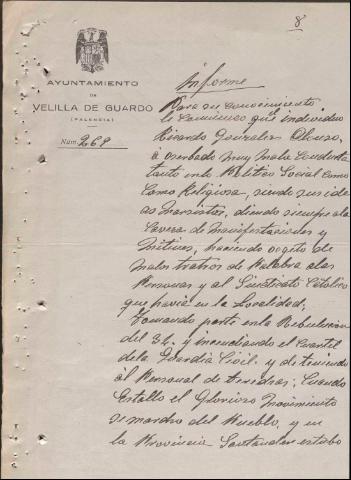 8
AYUNTAMIENTO
DE
VELILLA DE GUARDO
(PALENCIA)
Núm. 268
Informe
Para su conocimiento
le comunico que individuo
Ricardo Gonzalez Alonso,
á oserbado muy Mala Conduta
tanto en lo Politico Social como
Como Religiosa, siendo sus ide
as Marxistas, diendo siempre a la
Cavera de Manifestaciones y
Mitines, haciendo ogeto de
malos tratos de Palabra a las
Personas y al Sindicato Católico
que havia en la Localidad;
Tomando parte en la Rebulucion
del 34. y incendiando el Cuartel
de la Guardia Civil. y deteniendo
ál Personal de Derechas; Cuando
Estallo el Glorioso Movimiento
se marcho del Pueblo, y en
la Provincia Santander estubo